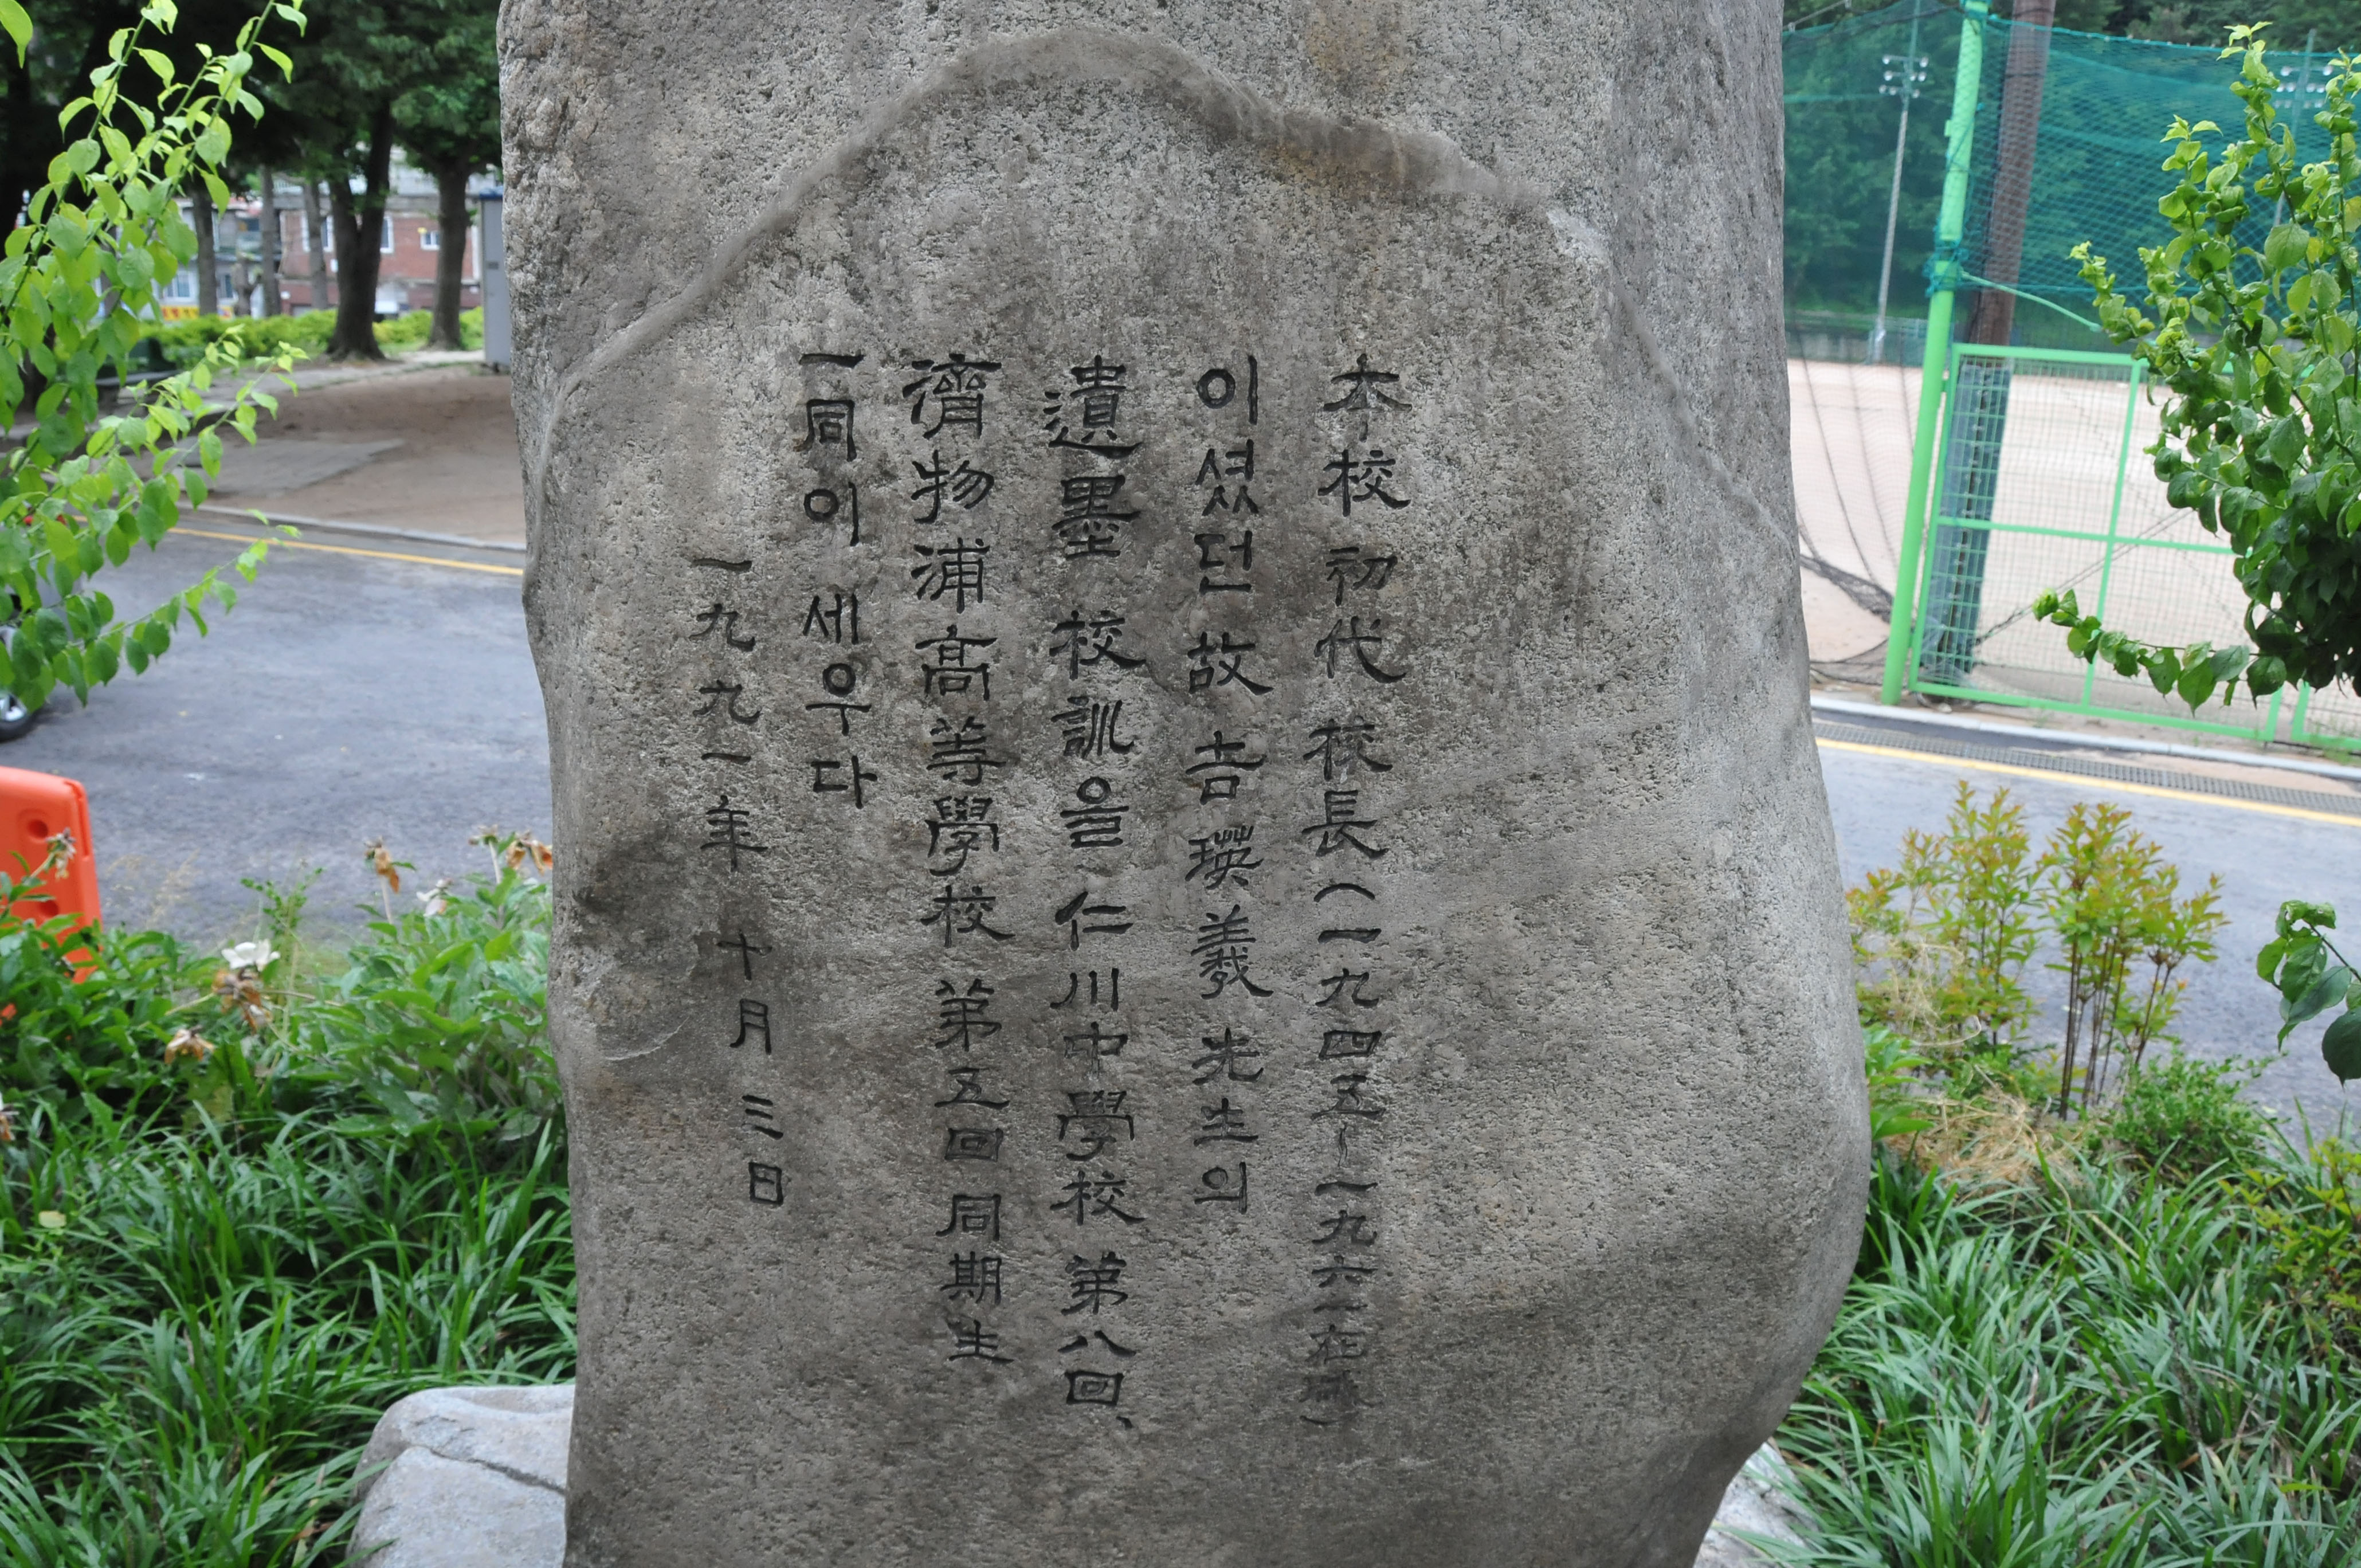 本校 初代 校長(一九四五~一九六一在職)
이셨던 故 吉瑛羲 先生의
遺墨 校訓을 仁川中學校 第八回、
濟物浦高等學校 第五回 同期生
一同이 세우다
一九九一年 十月 三日